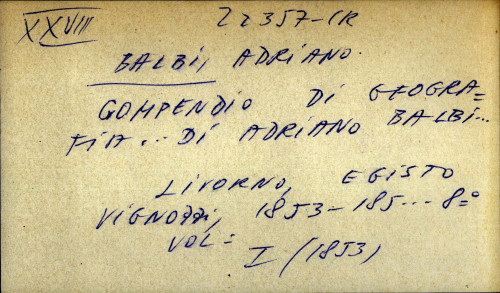 XXVIII 22357-CR
BALBI, ADRIANO.
COMPENDIO DI GEOGRA=
FIA... DI ADRIANO BALBI...
LIVORNO, EGISTO
VIGNOZZI, 1853-185... 8=°
VOL=
I (1853)